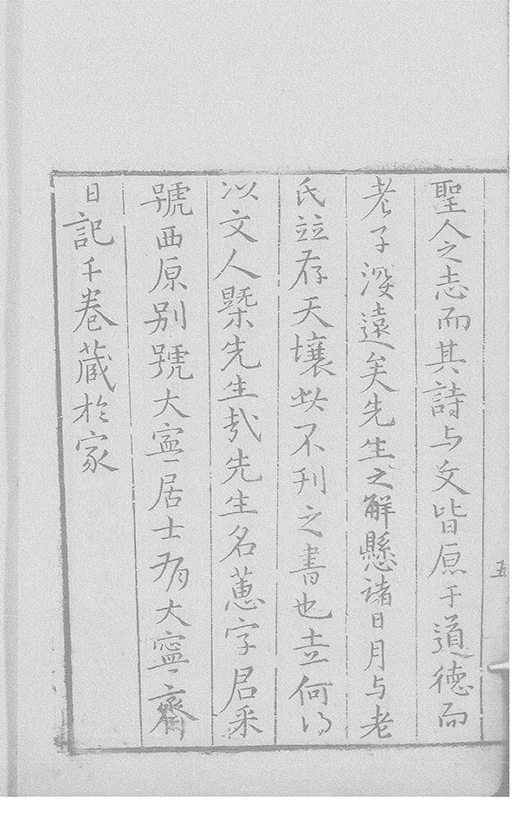 聖人之志而其詩与文皆原于道德而
老子沒遠矣先生之解懸諸日月与老
氏竝存天壤此不刊之書也𡊮何以
以文人槩先生㢤先生名蕙字君采
號西原别號大寧居士有大寧齋
日記千卷蔵於家
五